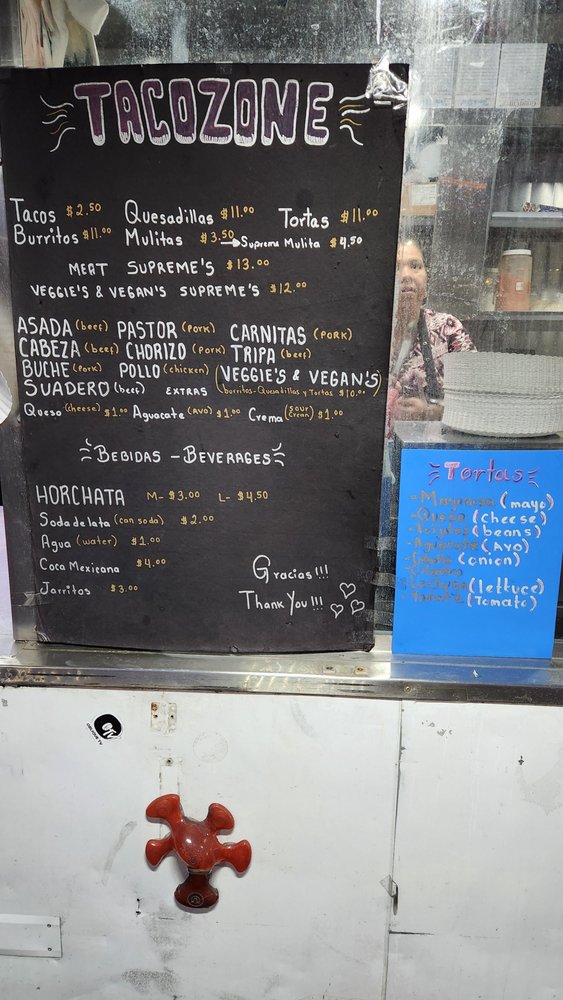 TACOZONE
Tacos $2.50 Quesadillas $11.00 Tortas $11.00
Burritos $11.00 Mulitas $3.50 → Supreme Mulita $4.50
MEAT SUPREME'S $13.00
VEGGIE'S & VEGAN'S SUPREME'S $12.00
ASADA (beef) PASTOR (Pork) CARNITAS (PORK)
CABEZA (beef) CHORIZO (Pork) TRIPA (beef)
BUCHE (Pork) POLLO (chicken) (VEGGIE'S & VEGAN'S
SUADERO (beef) EXTRAS burritos-Quesadillas y Tortas $10.00)
Queso (cheese) $1.00 Aguacate (AVO) $1.00 Crema (SOUR Cream) $1.00
BEBIDAS - BEVERAGES
HORCHATA M- $3.00 L- $4.50
Soda de lata (can soda) $2.00
Agua (water) $1.00
Coca Mexicana $4.00
Jarritos $3.00
Gracias!!!
Thank You!!!
Tortas
- Mayonesa (mayo)
- Queso (cheese)
(beans)
- Aguacate (AVO)
(onion)
(lettuce)
- Tomate (Tomato)